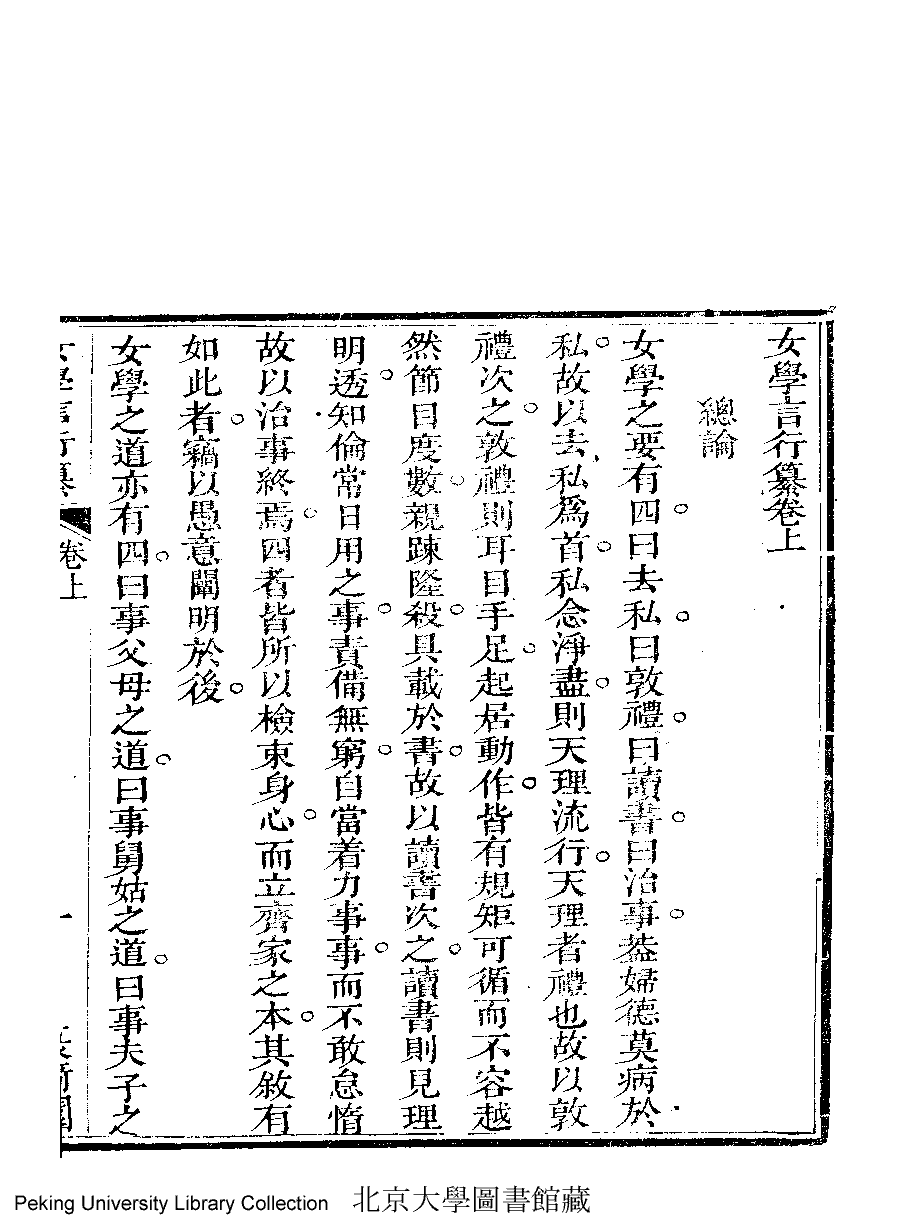 女學言行纂卷上
總論
女學之要有四。曰去私。曰敦禮。曰讀書。曰治事。葢婦德莫病於
私。故以去私爲首。私念淨盡。則天理流行。天理者禮也故以敦
禮次之。敦禮則耳目手足。起居動作。皆有規矩可循而不容越
然節目度數。親踈隆殺。具載於書。故以讀書次之。讀書則見理
明透。知倫常日用之事。責備無窮。自當着力事事。而不敢怠惰
故以治事終焉。四者皆所以檢束身心。而立齊家之本。其敘有
如此者。竊以愚意闡明於後。
女學之道亦有四。曰事父母之道。曰事舅姑之道。曰事夫子之
女學言行纂 卷上 一
Peking University Library Collection 北京大學圖書館藏